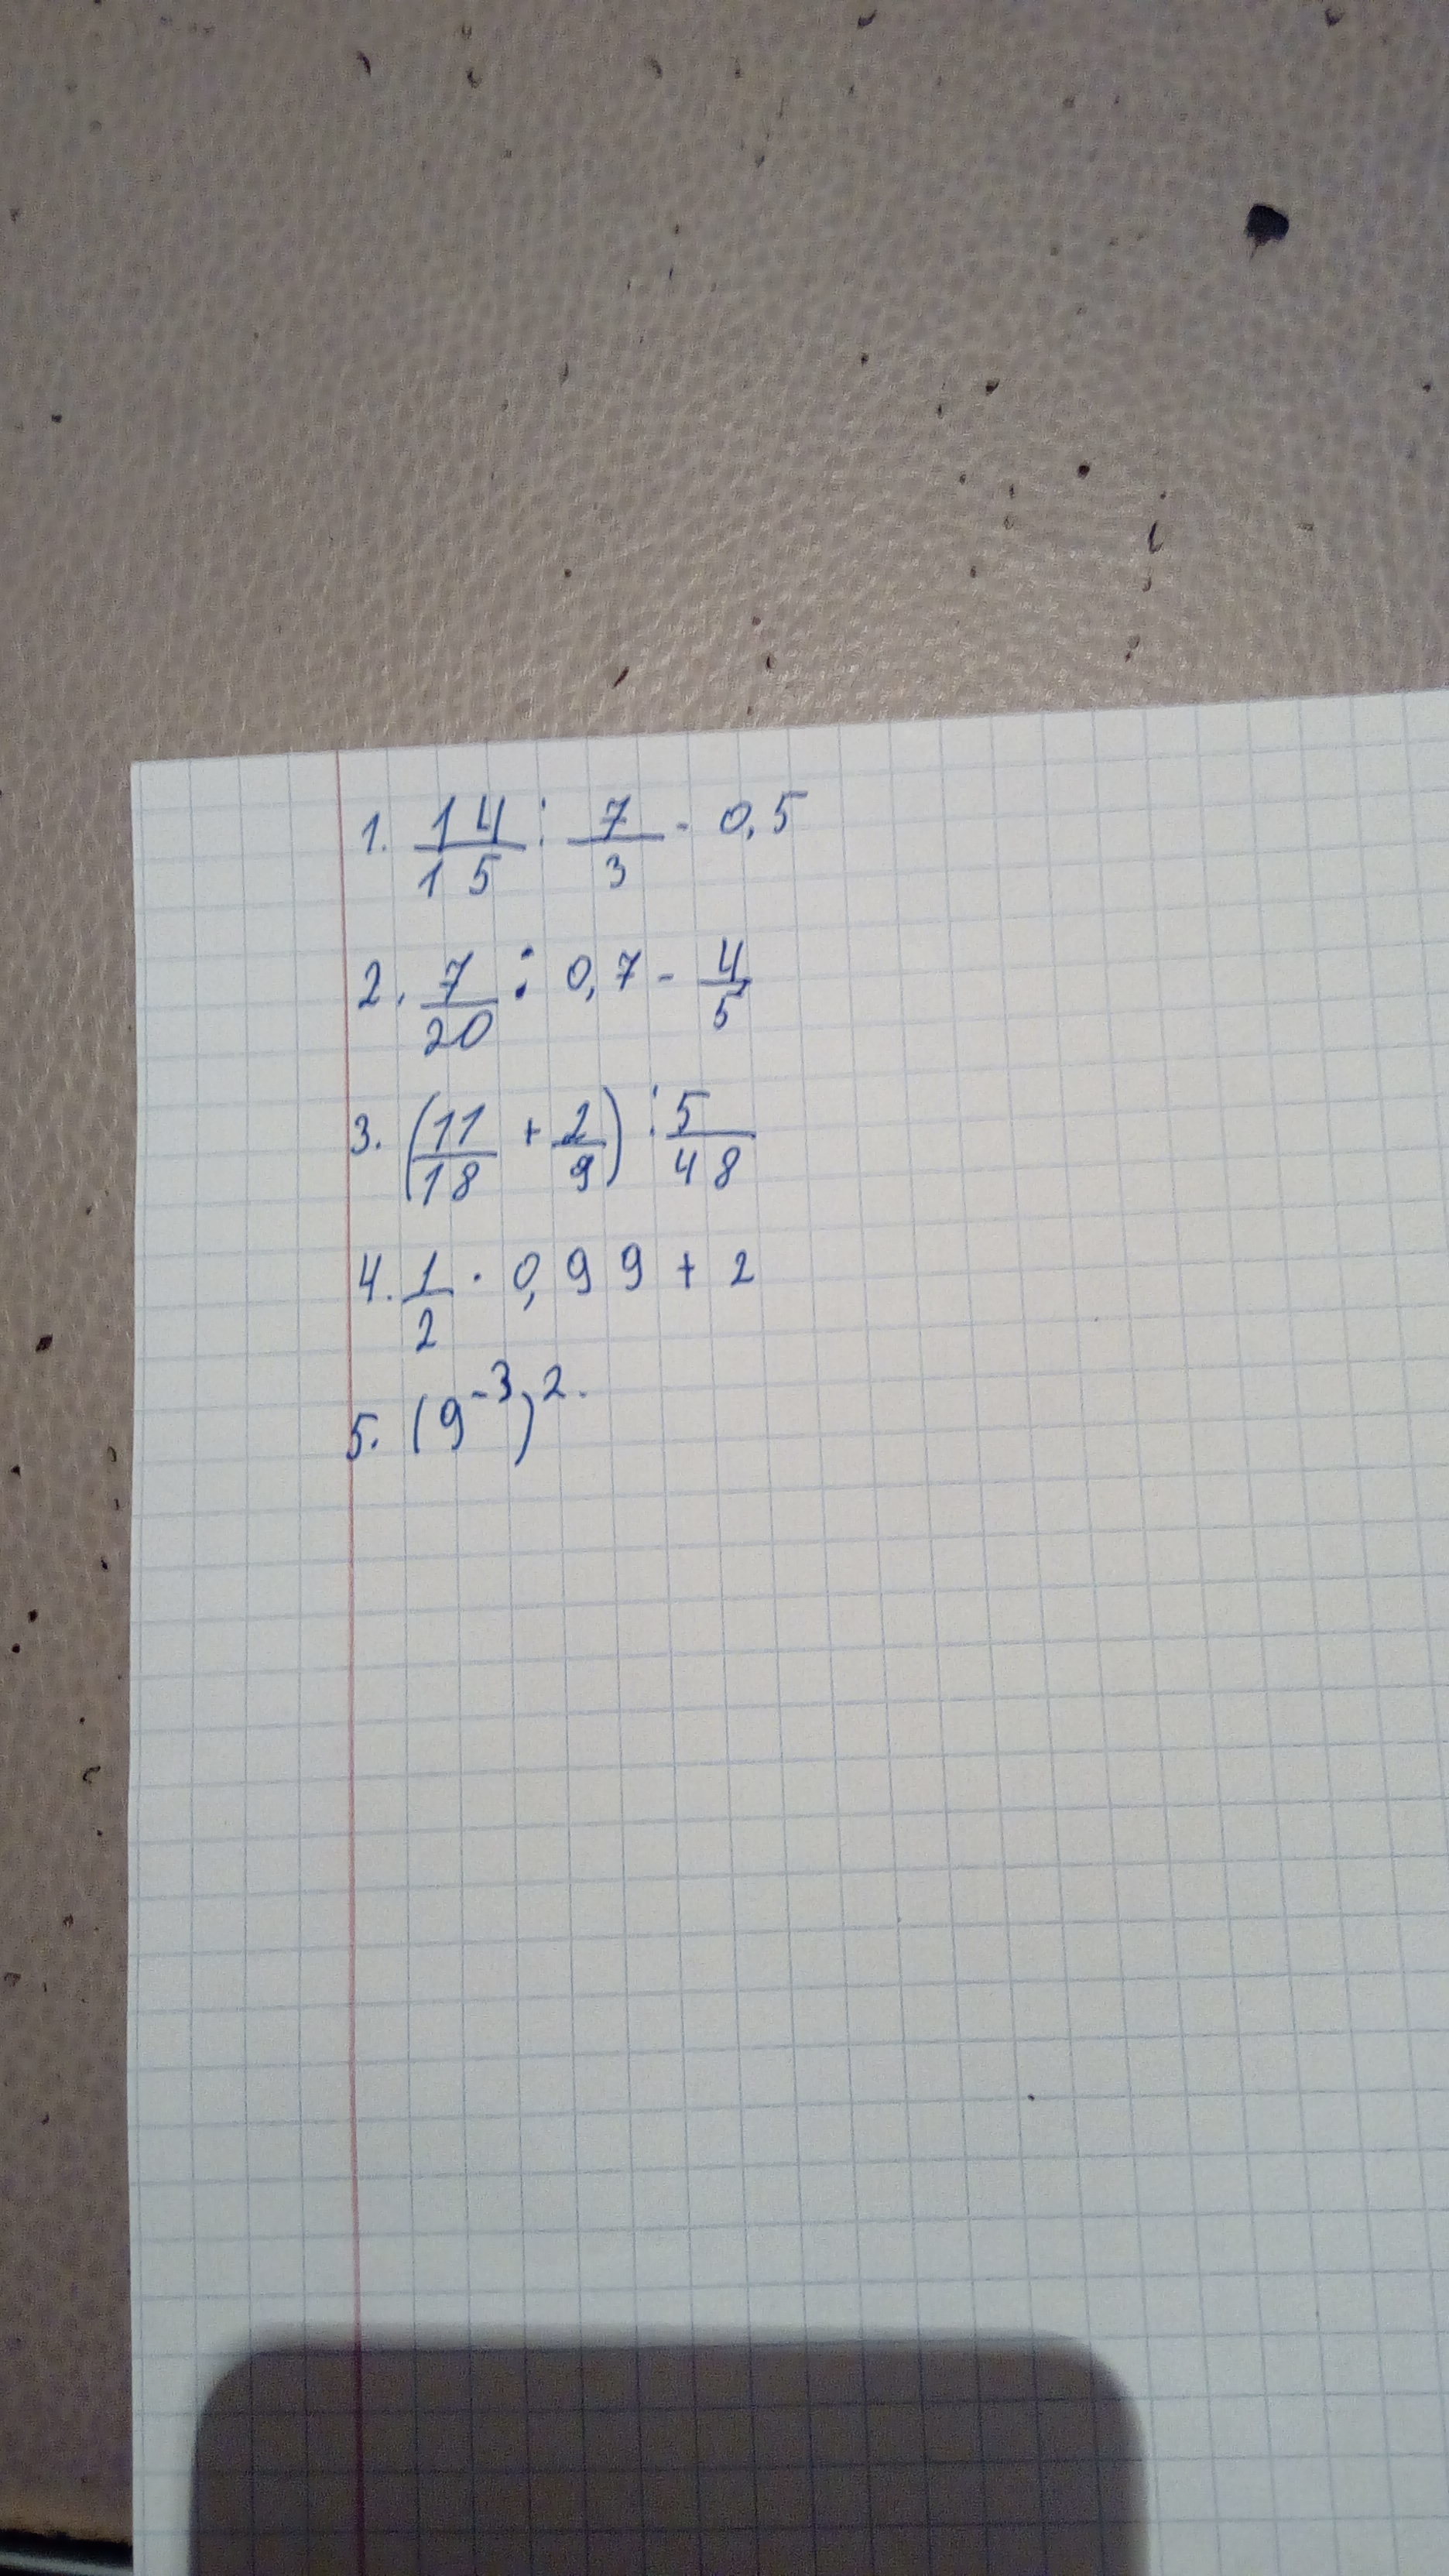 1. 14/15 : 7/3 - 0,5
2. 7/20 : 0,7 - 4/5
3. (11/18 + 2/9) : 5/48
4. 1/2 · 0,99 + 2
5. (9⁻³)².